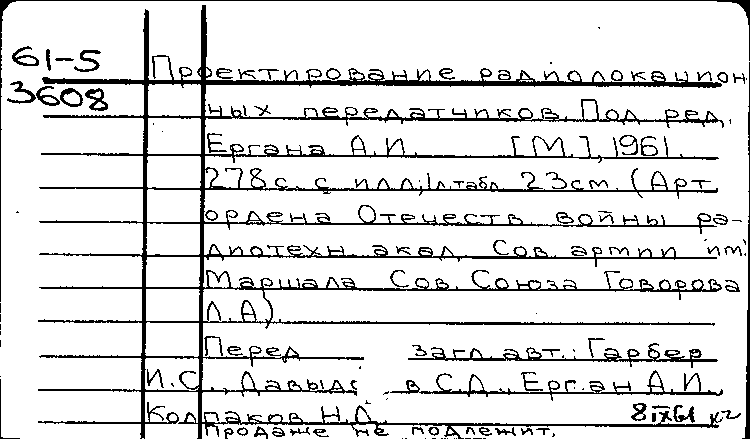 61-5
3608
Проектирование радиолокацион
ных передатчиков. Под ред.
Ергана А.И. [М.], 1961.
278с. с илл; 1л.табл 23см. (Арт
ордена Отечеств войны ра-
диотехн. акад. Сов. армии им.
Маршала Сов. Союза Говорова
Л.А).
Перед загл. авт.: Гарбер
И.С., Давыдов С.Д., Ерган А.И.,
Колпаков Н.Д.
8 IX 61
продаже не подлежит.